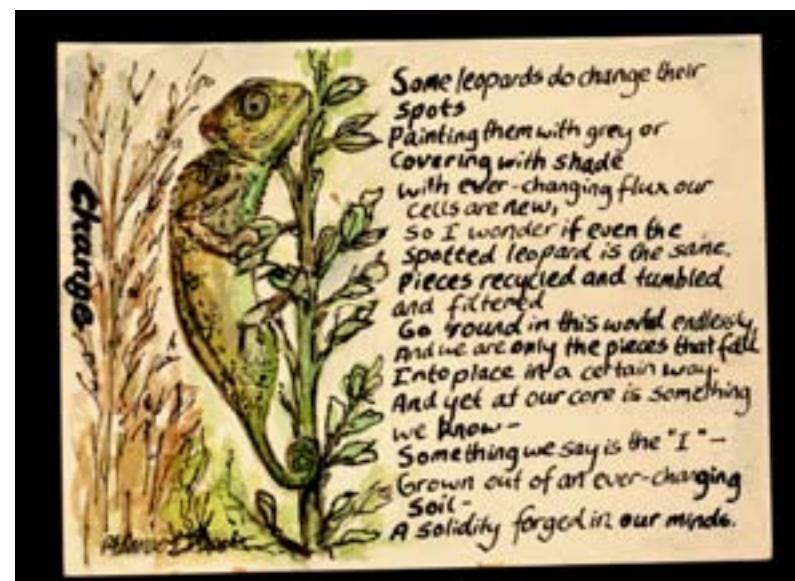 Change
Some leopards do change their
spots
Painting them with grey or
Covering with shade
with ever-changing flux our
cells are new,
So I wonder if even the
spotted leopard is the same.
Pieces recycled and tumbled
and filtered
Go 'round in this world endlessly,
And we are only the pieces that fall
Into place in a certain way.
And yet at our core is something
we know -
Something we say is the "I" -
Grown out of an ever-changing
Soil -
A solidity forged in our minds.